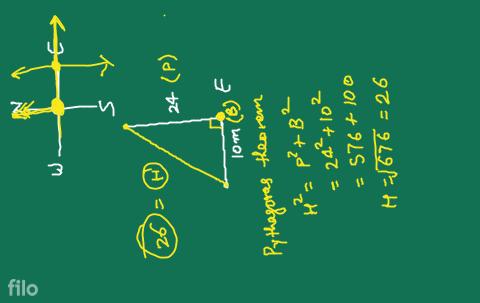 E
N
S
W
24 (P)
E
10m (B)
26 = (H)
Pythagoras theorem
H² = P² + B²
= 24² + 10²
= 576 + 100
H = √676 = 26
filo